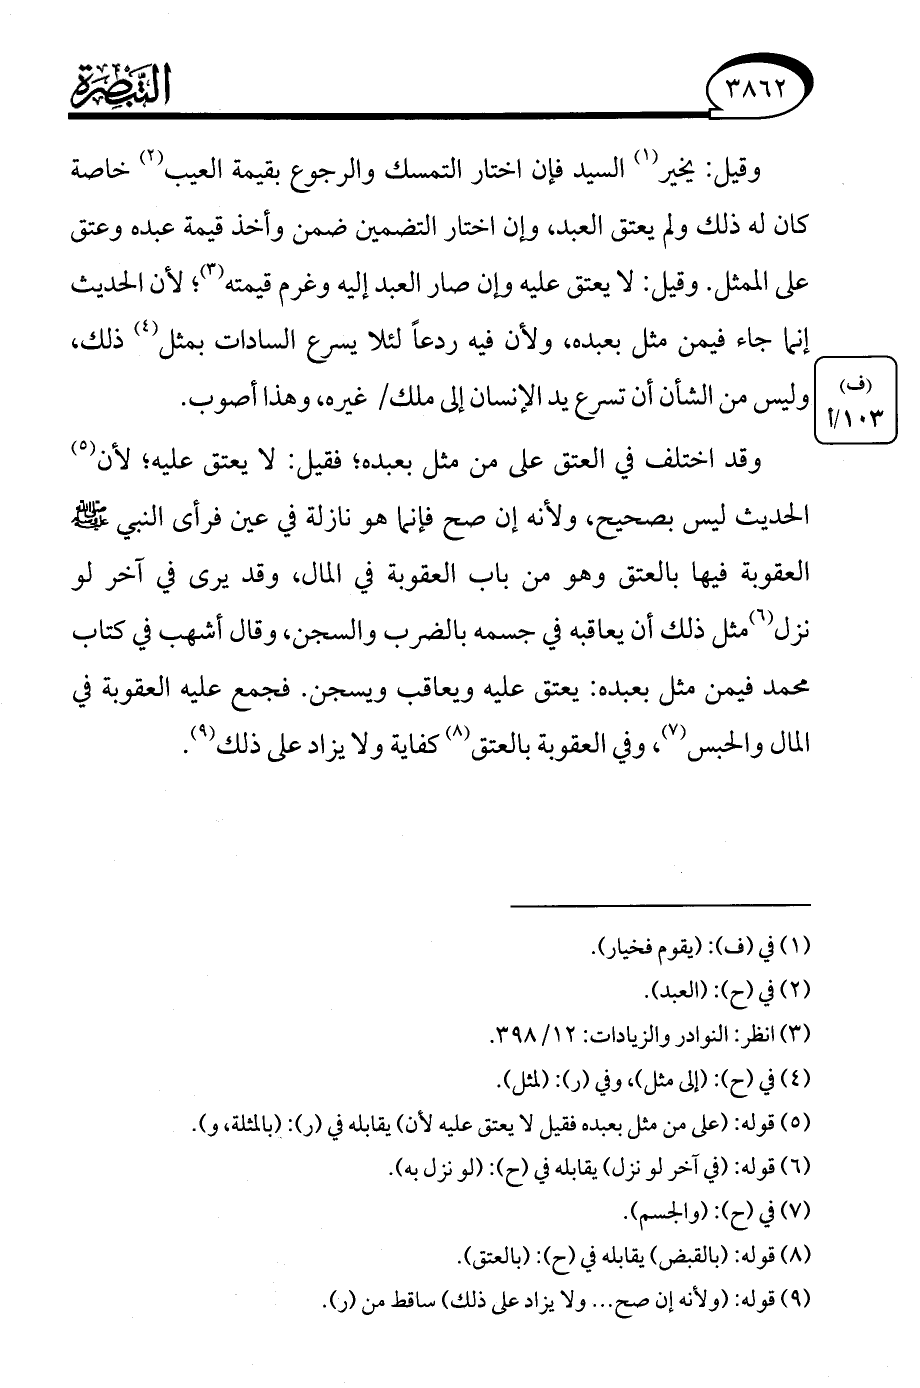 ٣٨٦٢
التبصرة
وقيل: يخير(١) السيد فإن اختار التمسك والرجوع بقيمة العيب(٢) خاصة
كان له ذلك ولم يعتق العبد، وإن اختار التضمين ضمن وأخذ قيمة عبده وعتق
على الممثل. وقيل: لا يعتق عليه وإن صار العبد إليه وغرم قيمته(٣)؛ لأن الحديث
إنما جاء فيمن مثل بعبده، ولأن فيه ردعاً لئلا يسرع السادات بمثل(٤) ذلك،
وليس من الشأن أن تسرع يد الإنسان إلى ملك/ غيره، وهذا أصوب.
(ف)
١٠٣/أ
وقد اختلف في العتق على من مثل بعبده؛ فقيل: لا يعتق عليه؛ لأن(٥)
الحديث ليس بصحيح، ولأنه إن صح فإنما هو نازلة في عين فرأى النبي ﷺ
العقوبة فيها بالعتق وهو من باب العقوبة في المال، وقد يرى في آخر لو
نزل(٦)مثل ذلك أن يعاقبه في جسمه بالضرب والسجن، وقال أشهب في كتاب
محمد فيمن مثل بعبده: يعتق عليه ويعاقب ويسجن. فجمع عليه العقوبة في
المال والحبس(٧)، وفي العقوبة بالعتق(٨) كفاية ولا يزاد على ذلك(٩).
(١) في (ف): (يقوم فخيار).
(٢) في (ح): (العبد).
(٣) انظر: النوادر والزيادات: ١٢/ ٣٩٨.
(٤) في (ح): (إلى مثل)، وفي (ر): (لمثل).
(٥) قوله: (على من مثل بعبده فقيل لا يعتق عليه لأن) يقابله في (ر): (بالمثلة، و).
(٦) قوله: (في آخر لو نزل) يقابله في (ح): (لو نزل به).
(٧) في (ح): (والجسم).
(٨) قوله: (بالقبض) يقابله في (ح): (بالعتق).
(٩) قوله: (ولأنه إن صح... ولا يزاد على ذلك) ساقط من (ر).